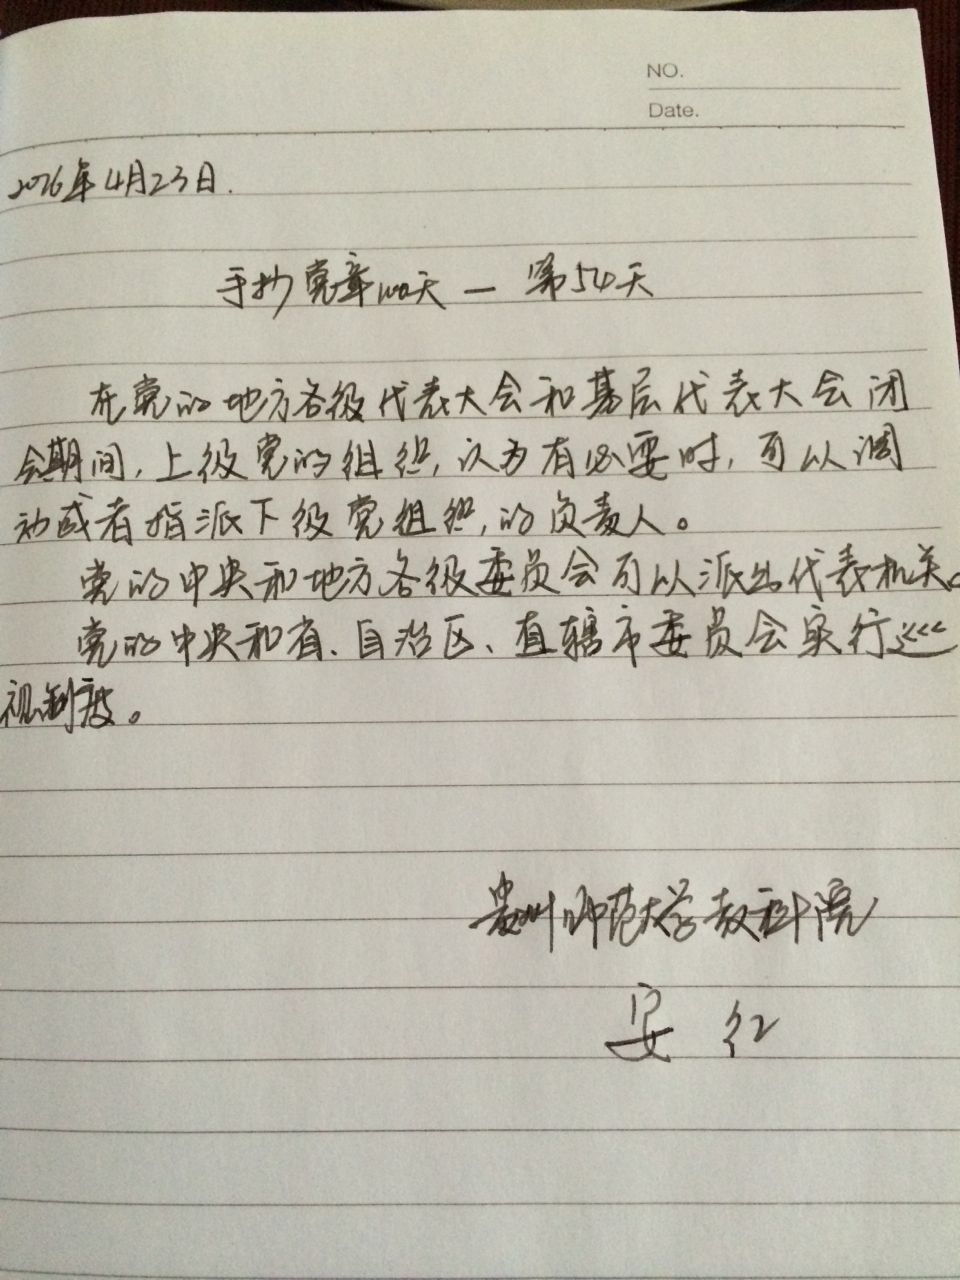 NO.
Date.
2016年4月23日.
手抄党章100天 — 第54天
在党的地方各级代表大会和基层代表大会闭
会期间,上级党的组织,认为有必要时,可以调
动或者指派下级党组织,的负责人。
党的中央和地方各级委员会可以派出代表机关。
党的中央和省、自治区、直辖市委员会实行巡
视制度。
贵州师范大学教科院
安 红